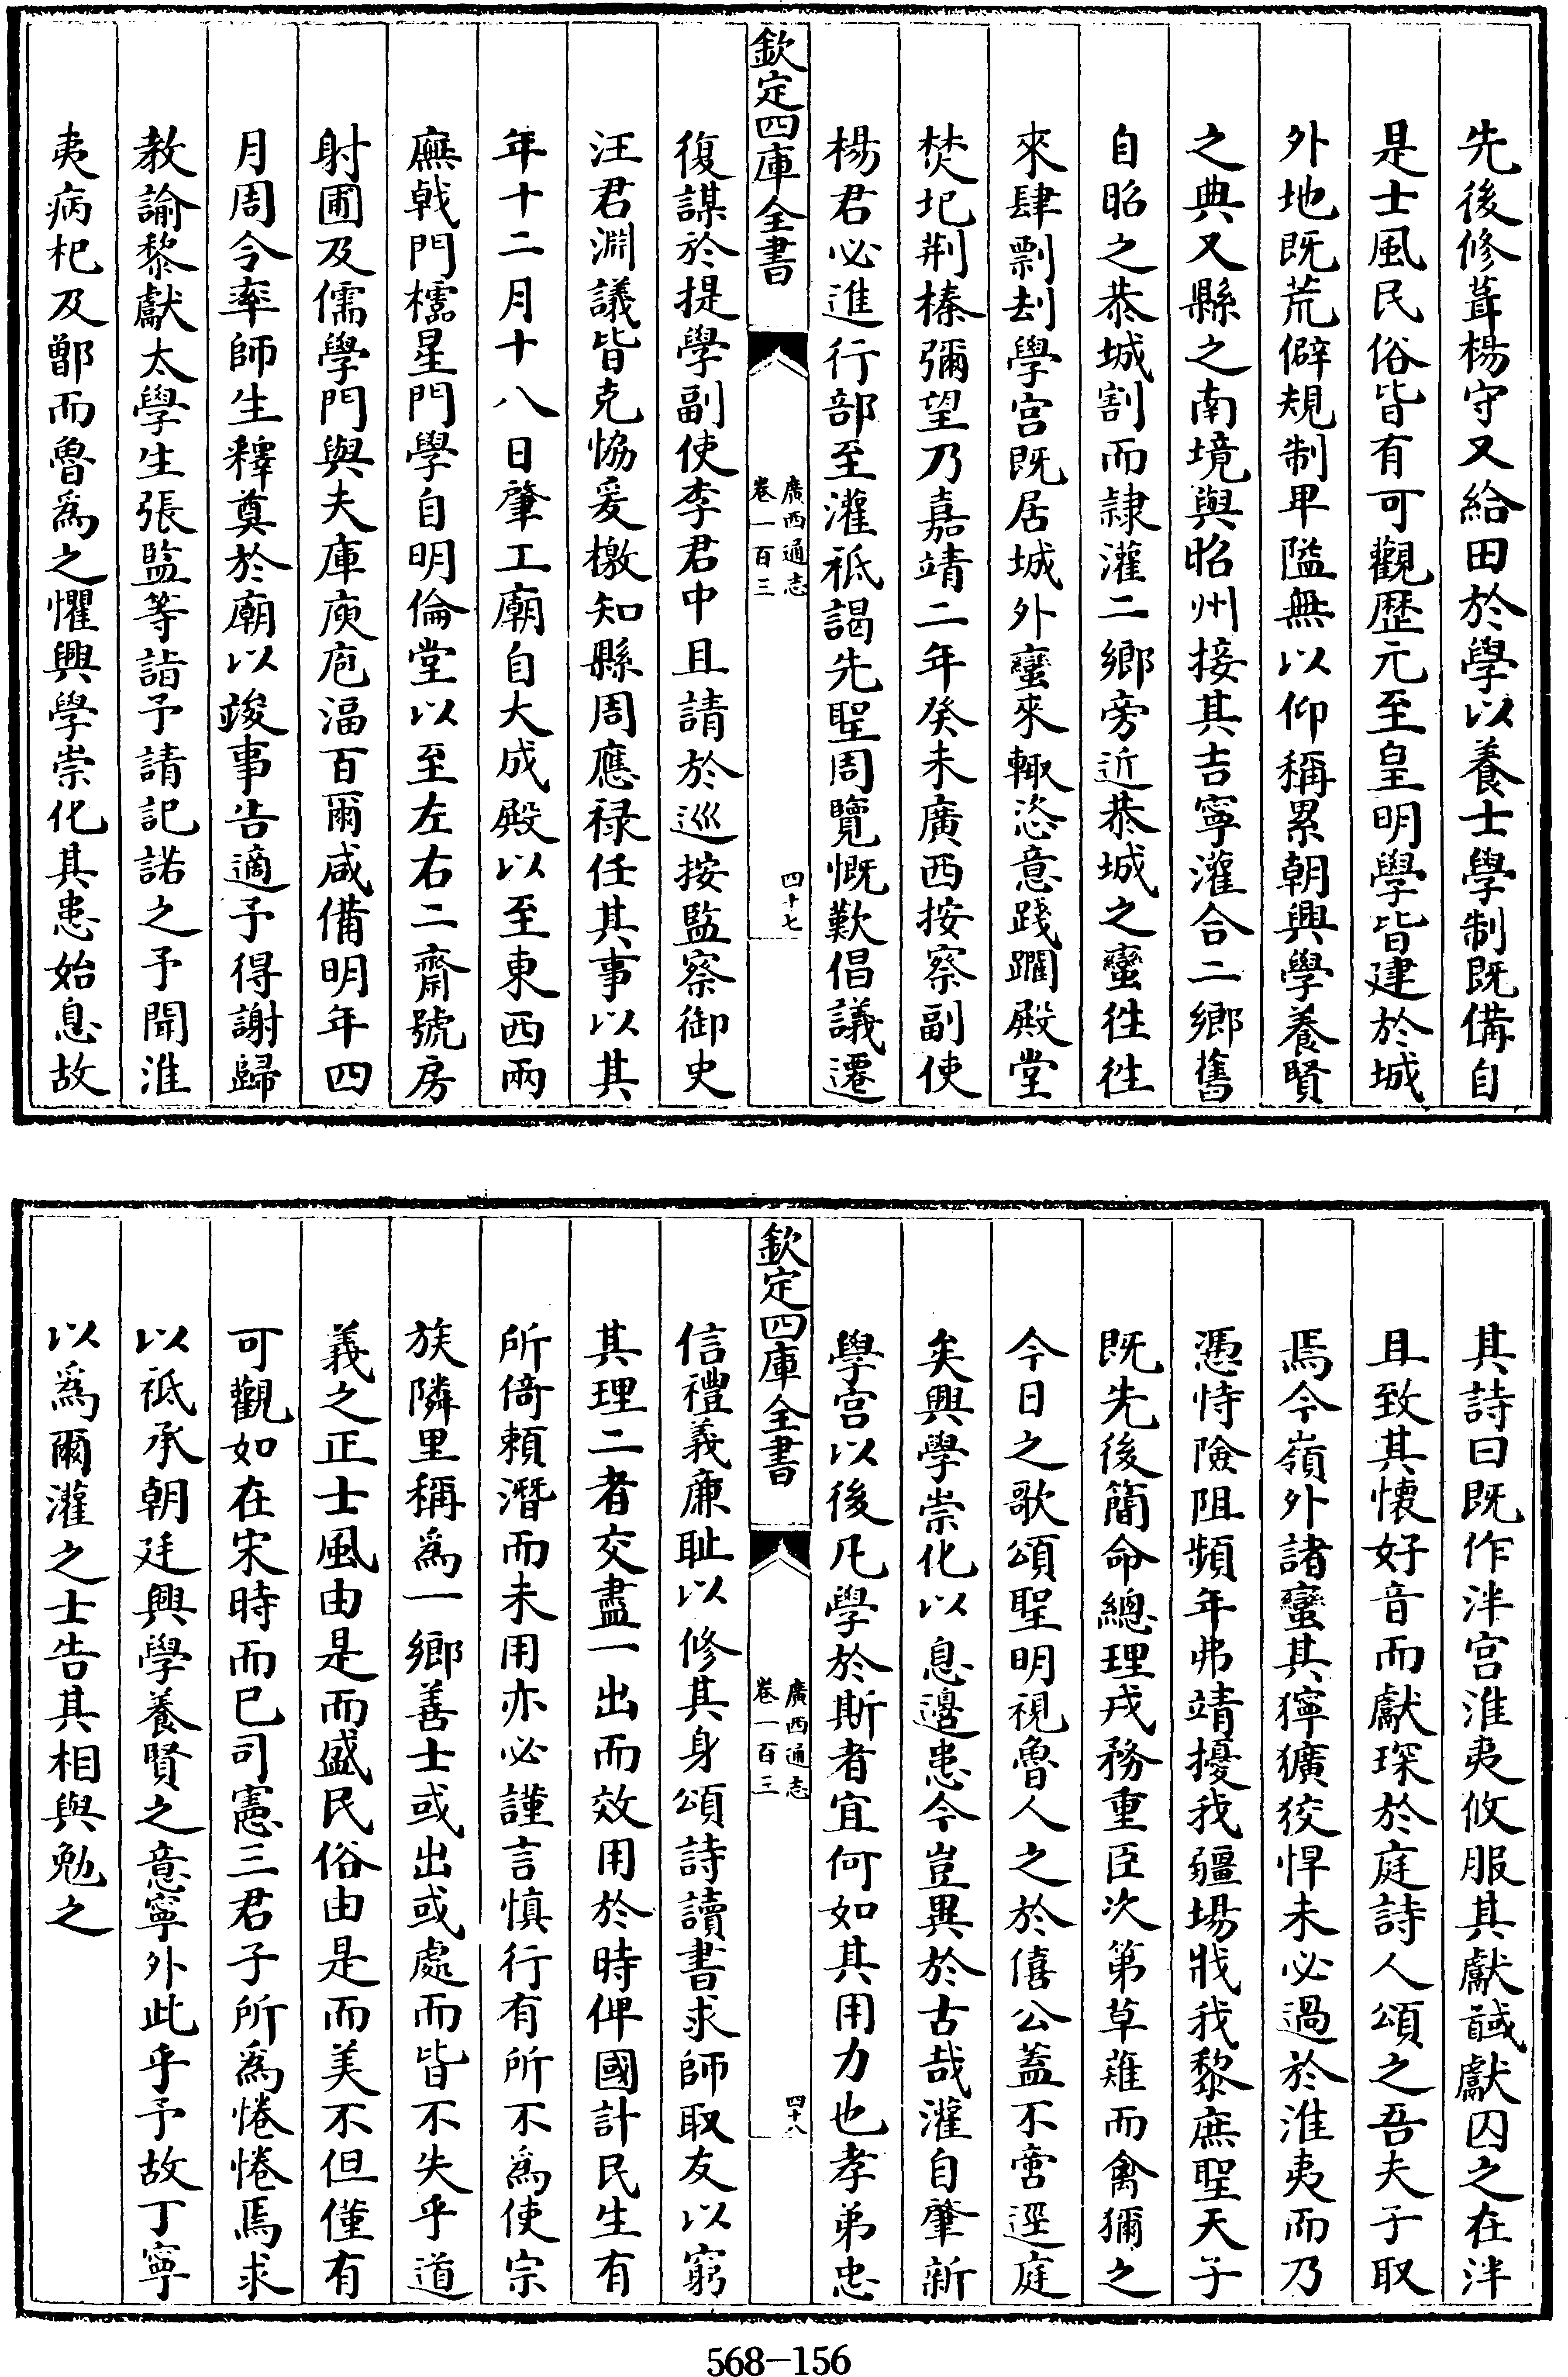 先後修葺楊守又給田於學以養士學制既備自
是士風民俗皆有可觀歴元至皇明學皆建於城
外地既荒僻規制卑隘無以仰稱累朝興學養賢
之典又縣之南境與昭州接其吉寧灌合二鄉舊
自昭之恭城割而隷灌二鄉旁近恭城之蠻徃徃
來肆剽刦學宫既居城外蠻來輙恣意踐躙殿堂
焚圮荆榛彌望乃嘉靖二年癸未廣西按察副使
楊君必進行部至灌祗謁先聖周覽慨歎倡議遷
欽定四庫全書
廣西通志
卷一百三
四十七
復謀於提學副使李君中且請於巡按監察御史
汪君淵議皆克恊爰檄知縣周應禄任其事以其
年十二月十八日肇工廟自大成殿以至東西兩
廡戟門櫺星門學自明倫堂以至左右二齋號房
射圃及儒學門與夫庫庾庖湢百爾咸備明年四
月周令率師生釋奠於廟以竣事告適予得謝歸
教諭黎獻太學生張監等詣予請記諾之予聞淮
夷病杞及鄫而魯爲之懼興學崇化其患始息故
其詩曰既作泮宫淮夷攸服其獻馘獻囚之在泮
且致其懐好音而獻琛於庭詩人頌之吾夫子取
焉今嶺外諸蠻其獰獷狡悍未必過於淮夷而乃
憑恃險阻頻年弗靖擾我疆埸戕我黎庶聖天子
既先後簡命總理戎務重臣次第草薙而禽獮之
今日之歌頌聖明視魯人之於僖公葢不啻逕庭
矣興學崇化以息邉患今豈異於古哉灌自肇新
學宫以後凡學於斯者宜何如其用力也孝弟忠
欽定四庫全書
廣西通志
卷一百三
四十八
信禮義廉耻以修其身頌詩讀書求師取友以窮
其理二者交盡一出而效用於時俾國計民生有
所倚頼潛而未用亦必謹言慎行有所不爲使宗
族隣里稱爲一鄉善士或出或處而皆不失乎道
義之正士風由是而盛民俗由是而美不但僅有
可觀如在宋時而已司憲三君子所爲惓惓焉求
以祗承朝廷興學養賢之意寧外此乎予故丁寧
以爲爾灌之士告其相與勉之
568-156